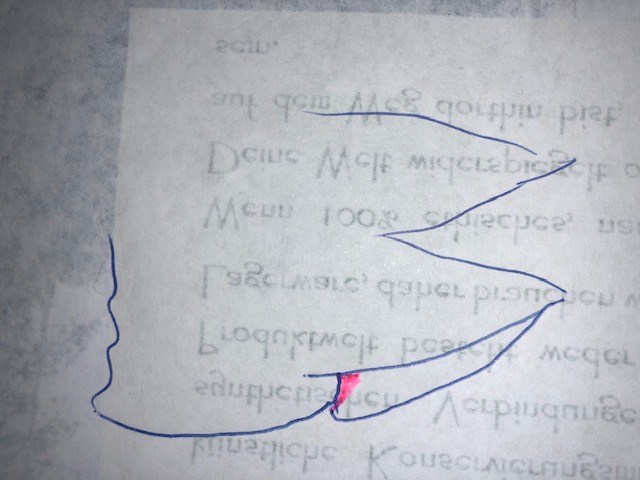 künstliche Konservierungsm
synthetischen Verbindunge
Produktwelt besteht weder
Lagerware, daher brauchen w
Wenn 100% ethisches, na
Deine Welt widerspiegelt o
auf dem Weg dorthin bist,
sein.